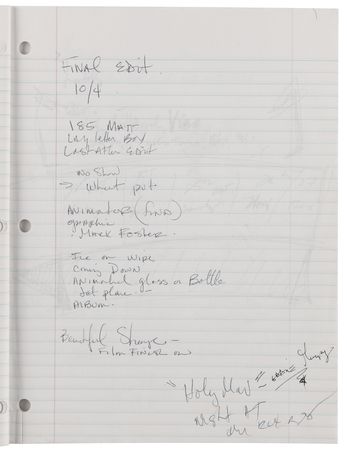 Final Edit.
10/4
185 Matt
Lay letter Box
Last After Edit
No Show
→ Wheat put
Animator (find)
Mark Fosher.
Fire on wire
Coming Down
Animated glass or Bottle
Jet plane -
Album.
Beautiful Strange -
Film Finish on
"Holy Man"
Night At
the